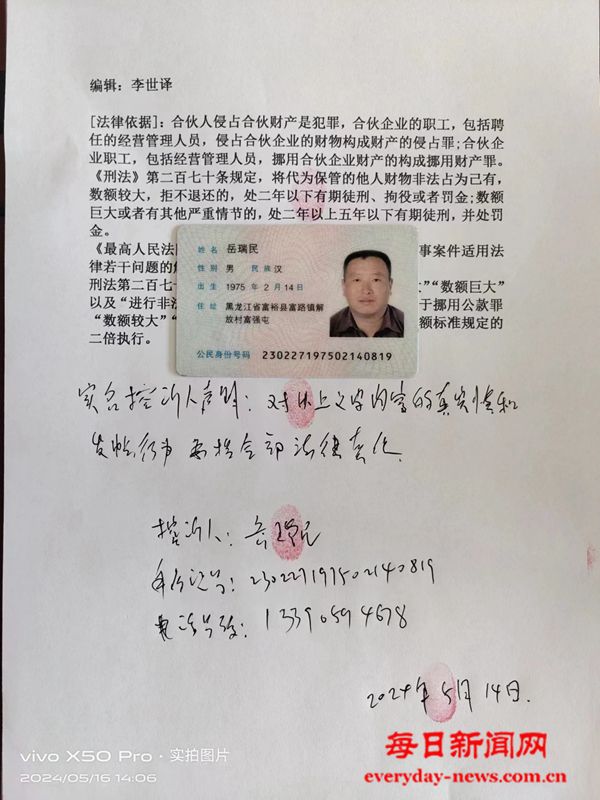 编辑：李世译
[法律依据]：合伙人侵占合伙财产是犯罪，合伙企业的职工，包括聘
任的经营管理人员，侵占合伙企业的财物构成财产的侵占罪；合伙企
业职工，包括经营管理人员，挪用合伙企业财产的构成挪用财产罪。
《刑法》第二百七十条规定，将代为保管的他人财物非法占为己有，
数额较大，拒不退还的，处二年以下有期徒刑、拘役或者罚金；数额
巨大或者有其他严重情节的，处二年以上五年以下有期徒刑，并处罚
金。
《最高人民法 事案件适用法
律若干问题的
刑法第二百七十 “数额巨大”
以及“进行非法 于挪用公款罪
“数额较大” 额标准规定的
二倍执行。
姓名 岳瑞民
性别 男 民族 汉
出生 1975 年 2 月 14 日
住址 黑龙江省富裕县富路镇解
放村富强屯
公民身份号码 230227197502140819
实名控诉人声明：对以上文字内容的真实性和
发帖行为 承担全部法律责任
控诉人：岳瑞民
身份证号：230227197502140819
电话号码：13390594678
2024年5月14日.
vivo X50 Pro · 实拍图片
2024/05/16 14:06
每日新闻网
everyday-news.com.cn